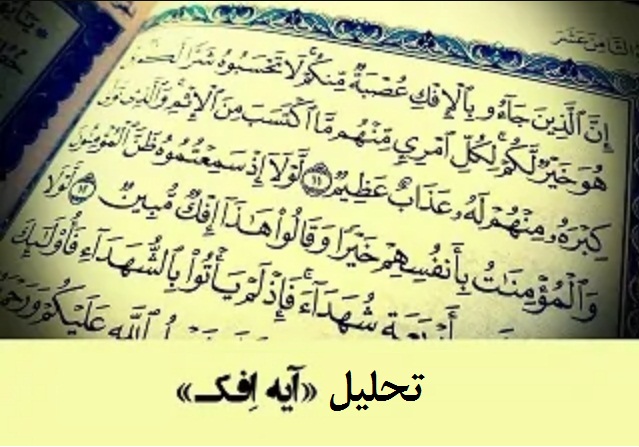 الثامن عشر
إِنَّ ٱلَّذِينَ جَآءُو بِٱلْإِفْكِ عُصْبَةٌ مِّنكُمْ لَا تَحْسَبُوهُ شَرًّا
هُوَ خَيْرٌ لَّكُمْ لِكُلِّ ٱمْرِئٍ مِّنْهُم مَّا ٱكْتَسَبَ مِنَ ٱلْإِثْمِ وَٱلَّذِى
كِبْرَهُۥ مِنْهُمْ لَهُۥ عَذَابٌ عَظِيمٌ ١١ لَّوْلَآ إِذْ سَمِعْتُمُوهُ ظَنَّ ٱلْمُؤْمِنُونَ
وَٱلْمُؤْمِنَٰتُ بِأَنفُسِهِمْ خَيْرًا وَقَالُوا۟ هَٰذَآ إِفْكٌ مُّبِينٌ ١٢ لَّوْلَا
بِأَرْبَعَةِ شُهَدَآءَ فَإِذْ لَمْ يَأْتُوا۟ بِٱلشُّهَدَآءِ فَأُو۟لَٰٓئِكَ
ٱللَّهِ عَلَيْكُمْ وَرَحْمَ
تحلیل «آیه اِفک»